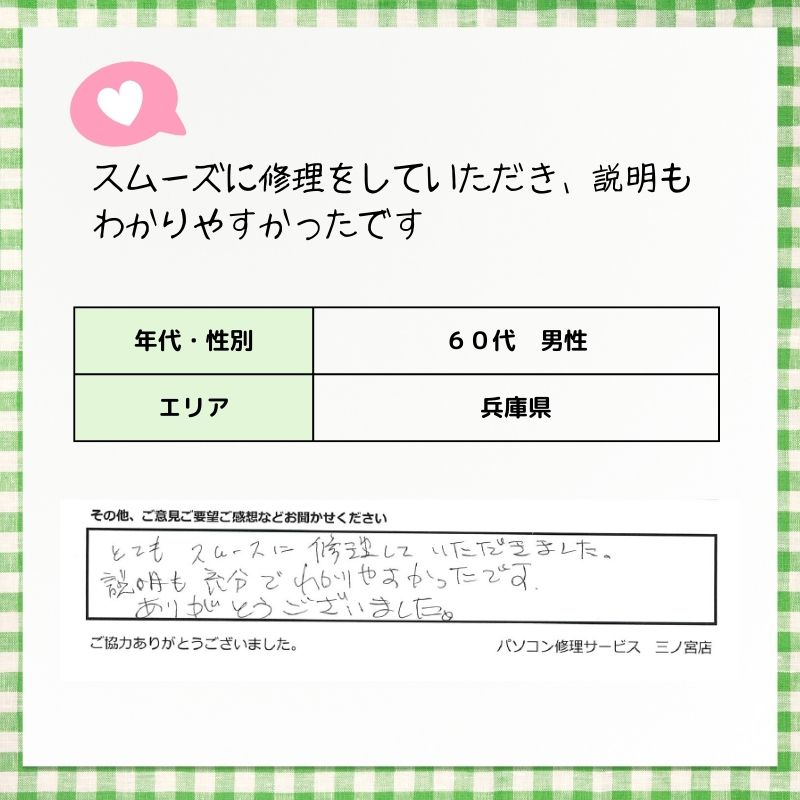 スムーズに修理をしていただき、説明も
わかりやすかったです
年代・性別
６０代　男性
エリア
兵庫県
その他、ご意見ご要望ご感想などお聞かせください
とても スムースに 修理して いただきました。
説明も 充分で わかりやすかったです.
ありがとうございました。
ご協力ありがとうございました。
パソコン修理サービス　三ノ宮店